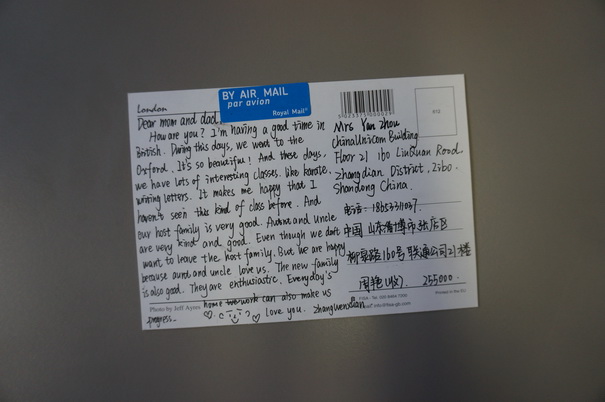 London
BY AIR MAIL
par avion
Royal Mail
Dear mom and dad,
How are you? I'm having a good time in
British. During this days, we went to the
Oxford. It's so beautiful! And these days,
we have lots of interesting classes. like karate,
writing letters. It makes me happy that I
haven't seen this kind of class before. And
our host family is very good. Aunt and Uncle
are very kind and good. Even though we don't
want to leave the host family. But we are happy
because aunt and uncle love us. The new family
is also good. They are enthusiastic. Everyday's
home work can also make us
progress.
love you. Zhangwenxian
Photo by Jeff Ayres
Mrs Yan Zhou
ChinaUnicom Building
Floor 21 160 LiuQuan Road
Zhangdian District, Zibo.
Shandong China.
电话
中国 山东省淄博市张店区
柳泉路160号联通公司21楼
周艳(收). 255000.
Printed in the EU